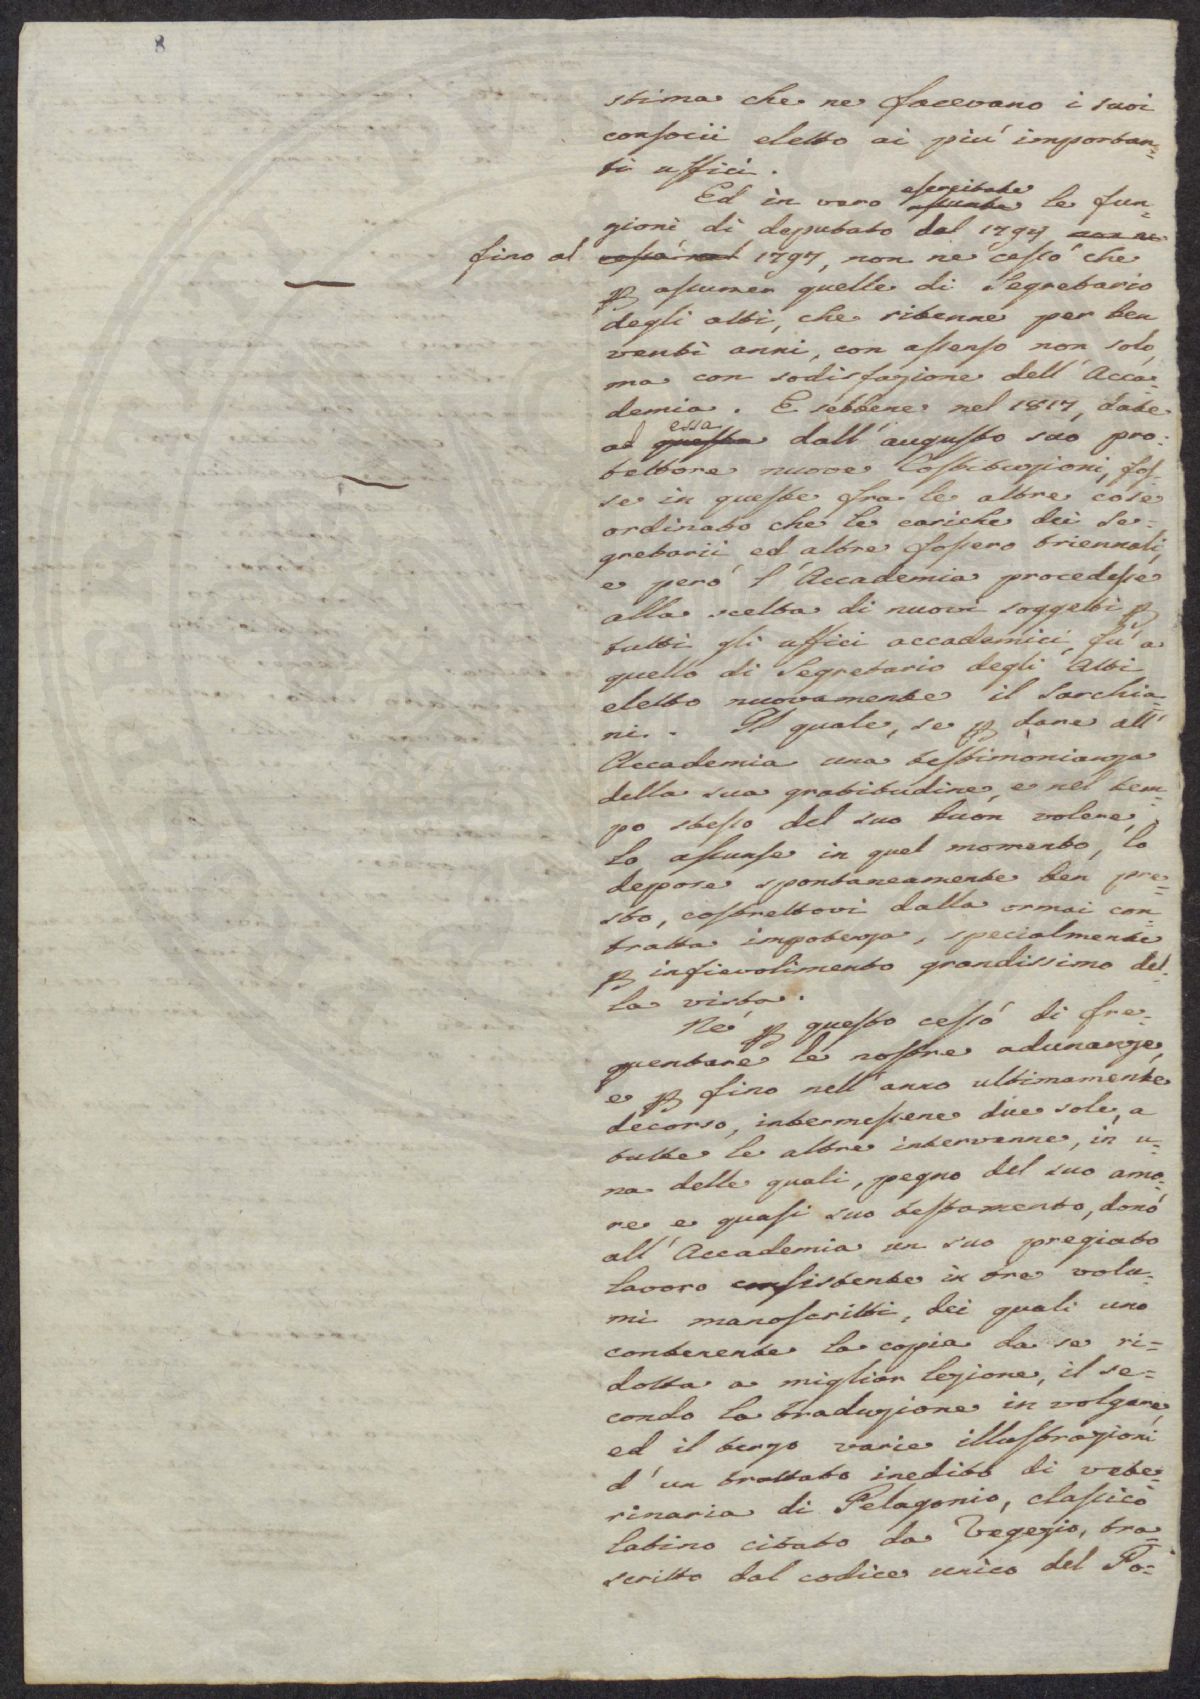 8
stima che ne facevano i suoi
consocii eletto ai più importan=
ti uffici.
Ed in vero esercitate assunte le fun=
zioni di deputato dal 1794 non ne
fino al cessò nel 1797, non ne cessò che
p assumer quelle di Segretario
degli atti, che ritenne per ben
venti anni, con assenso non solo,
ma con sodisfazione dell' Acca=
demia. E sebbene nel 1817, date
ad essa questa dall' augusto suo pro=
tettore nuove Costituzioni, fos=
se in queste fra le altre cose
ordinato che le cariche dei Se=
gretarii ed altre fossero triennali,
e però l' Accademia procedesse
alla scelta di nuovi soggetti p
tutti gli uffici accademici, fu a
quello di Segretario degli Atti
eletto nuovamente il Sarchia=
ni. Il quale, se p dare all'
Accademia una testimonianza
della sua gratitudine, e nel tem=
po stesso del suo buon volere,
lo assunse in quel momento, lo
depose spontaneamente ben pre=
sto, costrettovi dalla ormai con=
tratta impotenza, specialmente
p infievolimento grandissimo del=
la vista.
Nè p questo cessò di fre=
quentare le nostre adunanze,
e p fino nell' anno ultimamente
decorso, intermessene due sole, a
tutte le altre intervenne, in u=
na delle quali, pegno del suo amo=
re e quasi suo testamento, donò
all' Accademia un suo pregiato
lavoro consistente in tre volu=
mi manoscritti, dei quali uno
contenente la copia da se ri=
dotta a miglior lezione, il se=
condo la traduzione in volgare,
ed il terzo varie illustrazioni
d' un trattato inedito di vete=
rinaria di Pelagonio, classico
latino citato da Vegezio, tra=
scritto dal codice unico del Po=